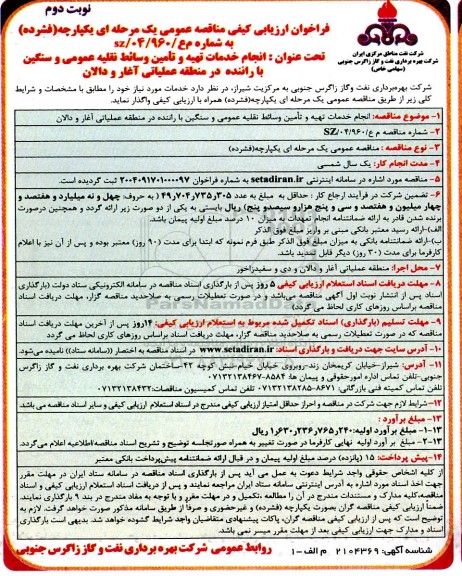 نوبت دوم
فراخوان ارزیابی کیفی مناقصه عمومی یک مرحله ای یکپارچه(فشرده)
به شماره م‌ع/۹۶۰/۰۴/sz
تحت عنوان : انجام خدمات تهیه و تأمین وسائط نقلیه عمومی و سنگین
با راننده در منطقه عملیاتی آغار و دالان
شرکت نفت مناطق مرکزی ایران
شرکت بهره برداری نفت و گاز زاگرس جنوبی
(سهامی خاص)
شرکت بهره‌برداری نفت وگاز زاگرس جنوبی به مرکزیت شیراز، در نظر دارد خدمات مورد نیاز خود را مطابق با مشخصات و شرایط
کلی زیر از طریق مناقصه عمومی یک مرحله ای یکپارچه(فشرده) همراه با ارزیابی کیفی واگذار نماید.
۱– موضوع مناقصه: انجام خدمات تهیه و تأمین وسائط نقلیه عمومی و سنگین با راننده در منطقه عملیاتی آغار و دالان
۲– شماره مناقصه م ع/۹۶۰/۰۴/SZ
۳– نوع مناقصه : مناقصه عمومی یک مرحله ای یکپارچه(فشرده)
۴– مدت انجام کار: یک سال شمسی
۵– مناقصه مورد اشاره در سامانه اینترنتی setadiran.ir به شماره فراخوان ۲۰۰۴۰۹۱۷۰۱۰۰۰۰۹۷ ثبت گردیده است.
۶– تضمین شرکت در فرآیند ارجاع کار : حداقل به مبلغ به عدد ۴۹٫۷۰۴٫۷۳۵٫۳۰۵ ( به حروف: چهل و نه میلیارد و هفتصد و
چهار میلیون و هفتصد و سی و پنج هزارو سیصدو پنج) ریال بایستی به یکی از دو صورت زیر ارائه گردد و همچنین درصورت
برنده شدن قادر به ارائه ضمانتنامه انجام تعهدات به میزان ۱۰ درصد مبلغ اولیه پیمان باشد.
الف)–ارائه رسید معتبر بانکی مبنی بر واریز مبلغ فوق الذکر
ب)–ارائه ضمانتنامه بانکی به میزان مبلغ فوق الذکر طبق فرم نمونه که ابتدا برای مدت (۹۰ روز) معتبر بوده و پس از آن نیز با اعلام
کارفرما برای مدت (۳۰ روز) دیگر قابل تمدید باشد.
۷– محل اجرا: منطقه عملیاتی آغار و دالان و دی و سفیدزاخور
۸– مهلت دریافت اسناد استعلام ارزیابی کیفی ۵ روز پس از بارگذاری اسناد مناقصه در سامانه الکترونیکی ستاد دولت (بارگذاری
اسناد پس از انتشار نوبت اول آگهی مناقصه می‌باشد و در صورت تعطیلات رسمی به صلاحدید مناقصه گزار، مهلت دریافت اسناد
مناقصه براساس روزهای کاری لحاظ می گردد)
۹– مهلت تسلیم (بارگذاری) اسناد تکمیل شده مربوط به استعلام ارزیابی کیفی: ۱۴روز پس از آخرین مهلت دریافت اسناد
مناقصه که در صورت تعطیلات رسمی به صلاحدید مناقصه گزار، مهلت دریافت اسناد براساس روزهای کاری لحاظ می گردد
۱۰– آدرس سایت جهت دریافت و بارگذاری اسناد: www.setadiran.ir در اسناد مناقصه به اختصار ((سامانه ستاد)) نامیده می‌شود.
۱۱– آدرس: شیراز–خیابان کریمخان زند–روبروی خیابان خیام–نبش کوچه ۴۲–ساختمان شرکت بهره‌برداری نفت و گاز زاگرس
جنوبی–تلفن تماس اداره امورحقوقی و پیمان ها: ۸۵۸۴–۰۷۱۳۲۱۳۸۴۶۷
تلفن تماس کمیته فنی بازرگانی: ۸۶۷۱–۰۷۱۳۲۱۳۸۲۸۵ تلفن تماس کمیسیون مناقصات:۰۷۱۳۲۱۳۸۴۳۲
۱۲–شرایط لازم جهت شرکت در مناقصه و احراز حداقل امتیاز ارزیابی کیفی مندرج در اسناد استعلام ارزیابی کیفی و سایر اسناد مناقصه می باشد.
۱۳– مبلغ برآورد :
۱–۱۳– مبلغ برآورد اولیه:۱٫۶۳۰٫۲۳۶٫۷۶۵٫۲۴۰ ریال
۲–۱۳– مبلغ بر آورد اولیه نهایی کارفرما در صورت تغییر به همراه صورتجلسه توضیح و تشریح اسناد مناقصه/اطلاعیه اعلام می‌گردد.
۱۴–پیش پرداخت: ۱۵ (پانزده) درصد مبلغ اولیه پیمان و در قبال ارائه ضمانتنامه پیش‌پرداخت بانکی معتبر
از کلیه اشخاص حقوقی واجد شرایط دعوت به عمل می آید پس از بارگذاری اسناد مناقصه در سامانه ستاد ایران در مهلت مقرر
جهت اخذ اسناد مورد اشاره به آدرس اینترنتی سامانه ستاد ایران مراجعه نمایند و پس از دریافت اسناد استعلام ارزیابی کیفی و اسناد
مناقصه،کلیه مدارک و مستندات مندرج در آن را مطالعه ،تکمیل و در مهلت مقرر و با توجه به مفاد مندرج در بند ۹ بارگذاری نمایند.
ضمناً ارزیابی کیفی مناقصه گران بصورت یکپارچه (فشرده) و غیرحضوری و صرفاً از طریق سامانه مذکور صورت خواهد گرفت. لازم به
توضیح است که پس از ارزیابی کیفی مناقصه گران، پاکات پیشنهادی متقاضیان واجد شرایط گشوده خواهد شد. بدیهی است بارگذاری
اسناد و مدارک جهت ارزیابی کیفی بعد از مهلت مقرر میسر نمی باشد.
شناسه آگهی: ۲۱۰۴۳۶۹ م الف–۱ روابط عمومی شرکت بهره برداری نفت و گاز زاگرس جنوبی